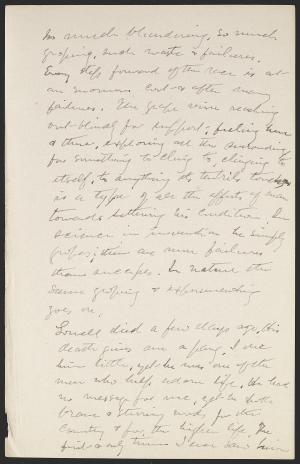 So much blundering, so much
groping, such waste & failures.
Every step forward of the race is at
an enormous cost & after many
failures. The grape vine reaching
out blindly for support, feeling here
& there, exploring all the surroundings
for something to cling to, clinging to
itself, to anything its tendrils touch,
is a type of all the efforts of man
towards bettering his condition. In
science in invention he simply
gropes; there are more failures
than successes. In nature the
same groping & experimenting
goes on.
Lowell died a few days ago, His
death gives me a pang. I owe
him little, yet he was one of the
men who help adorn life. He had
no message for me, yet he hath
brave & stirring words for the
country & for the higher life. The
first & only time I ever saw him